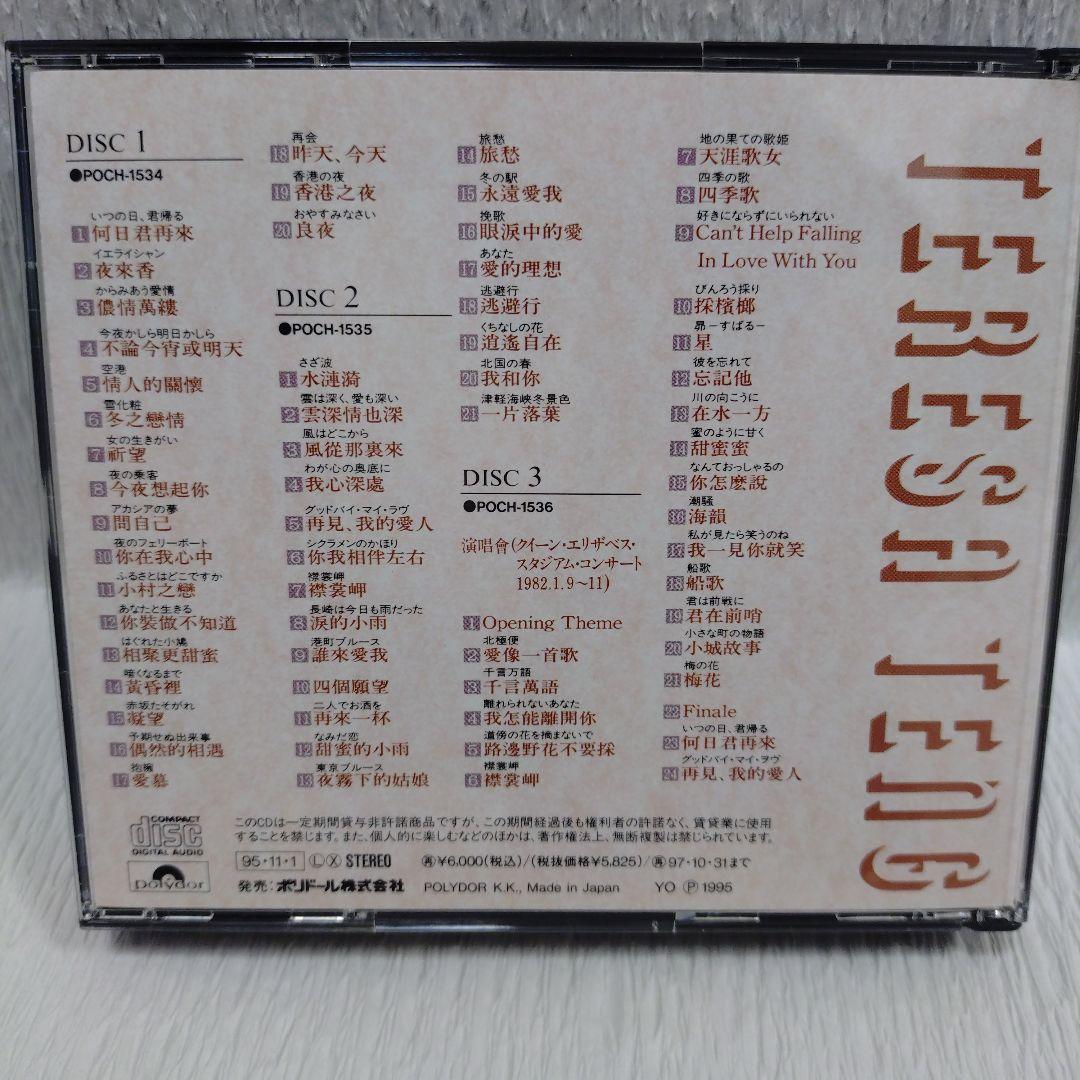 DISC 1
●POCH-1534
いつの日、君帰る
1 何日君再來
イエライシャン
2 夜來香
からみあう愛情
3 儂情萬縷
今夜かしら明日かしら
4 不論今宵或明天
空港
5 情人的關懷
雪化粧
6 冬之戀情
女の生きがい
7 祈望
夜の乗客
8 今夜想起你
アカシアの夢
9 問自己
夜のフェリーボート
10 你在我心中
ふるさとはどこですか
11 小村之戀
あなたと生きる
12 你裝做不知道
はぐれた小鳩
13 相聚更甜蜜
暗くなるまで
14 黃昏裡
赤坂たそがれ
15 凝望
予期せぬ出来事
16 偶然的相遇
抱擁
17 愛慕
再会
18 昨天、今天
香港の夜
19 香港之夜
おやすみなさい
20 良夜
DISC 2
●POCH-1535
さざ波
1 水漣漪
雲は深く、愛も深い
2 雲深情也深
風はどこから
3 風從那裏來
わが心の奥底に
4 我心深處
グッドバイ・マイ・ラヴ
5 再見、我的愛人
シクラメンのかほり
6 你我相伴左右
襟裳岬
7 襟裳岬
長崎は今日も雨だった
8 淚的小雨
港町ブルース
9 誰來愛我
10 四個願望
二人でお酒を
11 再來一杯
なみだ恋
12 甜蜜的小雨
東京ブルース
13 夜霧下的姑娘
旅愁
14 旅愁
冬の駅
15 永遠愛我
挽歌
16 眼淚中的愛
あなた
17 愛的理想
逃避行
18 逃避行
くちなしの花
19 逍遙自在
北国の春
20 我和你
津軽海峡冬景色
21 一片落葉
DISC 3
●POCH-1536
演唱會(クイーン・エリザベス・
スタジアム・コンサート
1982.1.9~11)
1 Opening Theme
北極便
2 愛像一首歌
千言万語
3 千言萬語
離れられないあなた
4 我怎能離開你
道傍の花を摘まないで
5 路邊野花不要採
襟裳岬
6 襟裳岬
地の果ての歌姫
7 天涯歌女
四季の歌
8 四季歌
好きにならずにいられない
9 Can't Help Falling
In Love With You
びんろう採り
10 採檳榔
昴－すばる－
11 星
彼を忘れて
12 忘記他
川の向こうに
13 在水一方
蜜のように甘く
14 甜蜜蜜
なんておっしゃるの
15 你怎麽說
潮騒
16 海韻
私が見たら笑うのね
17 我一見你就笑
船歌
18 船歌
君は前戦に
19 君在前哨
小さな町の物語
20 小城故事
梅の花
21 梅花
22 Finale
いつの日、君帰る
23 何日君再來
グッドバイ・マイ・ヲヴ
24 再見、我的愛人
COMPACT
disc
DIGITAL AUDIO
polydor
このCDは一定期間貸与非許諾商品ですが、この期間経過後も権利者の許諾なく、賃貸業に使用
することを禁じます。また、個人的に楽しむなどのほかは、著作権法上、無断複製は禁じられています。
95・11・1 Ⓛ Ⓧ STEREO
㊢¥6,000(税込)/(税抜価格¥5,825)/㊢97・10・31まで
発売：ポリドール株式会社 POLYDOR K.K., Made in Japan YO Ⓟ 1995